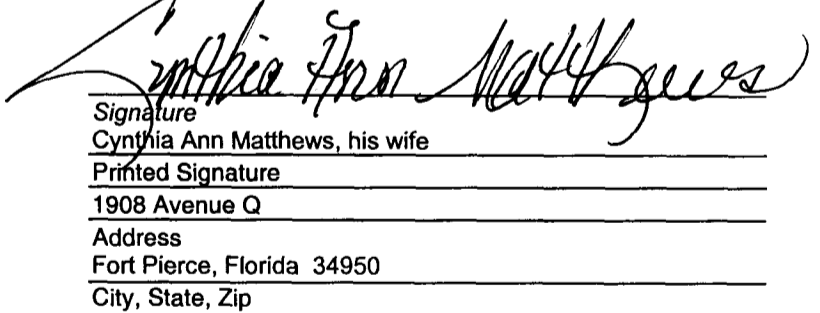 Cynthia Ann Matthews
Signature
Cynthia Ann Matthews, his wife
Printed Signature
1908 Avenue Q
Address
Fort Pierce, Florida 34950
City, State, Zip